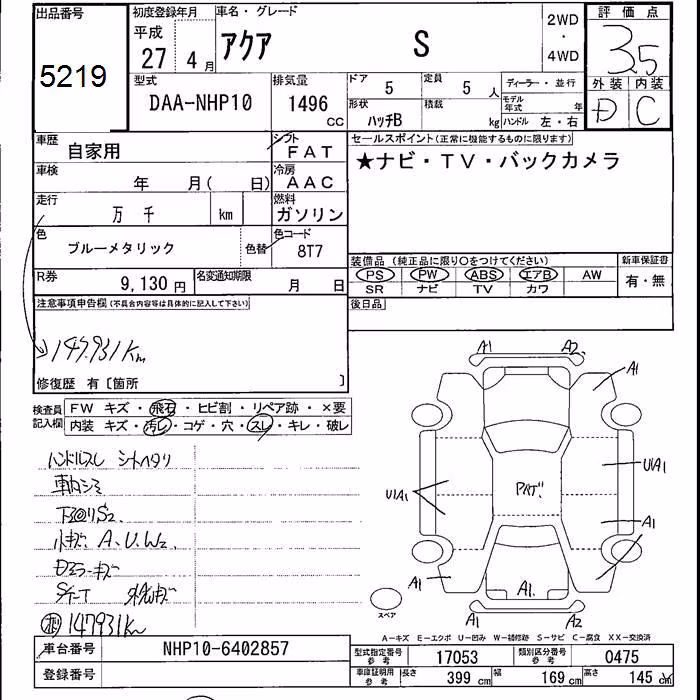 出品番号 初度登録年月 車名・グレード 2WD 評価点
5219 平成 27 4月 アクア S ・ 4WD 3.5
型式 排気量 ドア 5 定員 5人 ディーラー・並行 外装 内装
DAA-NHP10 1496 CC 形状 ハッチB 積載 kg モデル年式 年 D C
ハンドル 左・右
車歴 自家用 シフト FAT セールスポイント(正常に機能するものに限ります)
車検 年 月( 日) 冷房 AAC ★ナビ・TV・バックカメラ
走行 万 千 km 燃料 ガソリン
色 ブルーメタリック 色替 色コード 8T7
装備品 (純正品に限り○をつけてください) 新車保証書
R券 9,130円 名変通知期限 月 日 PS PW ABS エアB AW 有・無
SR ナビ TV カワ
注意事項申告欄(不具合内容等は具体的に記入して下さい) 後日品
147,931Km
修復歴 有〔箇所 〕
検査員記入欄 FW キズ・飛石・ヒビ割・リペア跡・×要
内装 キズ・汚レ・コゲ・穴・スレ・キレ・破レ
ハンドルスレ シートヘタリ
車内シミ
下回りS2
小キズ A.U.W2
Dミラーキズ
147931Km
A1 A2
A1
U1A1
U1A1
A1
A1
A1
A1 A2
スペア
A-キズ E-エクボ U-凹み W-補修跡 S-サビ C-腐食 XX-交換済
車台番号 NHP10-6402857 型式指定番号 参考 17053 類別区分番号 参考 0475
登録番号 車庫証明用 参考 長さ 399 cm 幅 169 cm 高さ 145 cm